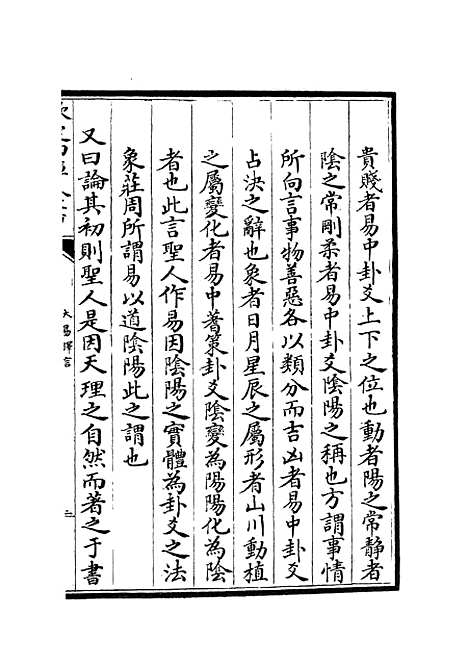 貴賤者易中卦爻上下之位也動者陽之常靜者
陰之常剛柔者易中卦爻陰陽之稱也方謂事情
所向言事物善惡各以類分而吉凶者易中卦爻
占決之辭也象者日月星辰之屬形者山川動植
之屬變化者易中蓍策卦爻陰變為陽陽化為陰
者也此言聖人作易因陰陽之實體為卦爻之法
象莊周所謂易以道陰陽此之謂也
又曰論其初則聖人是因天理之自然而著之于書
欽定四庫全書
大易擇言